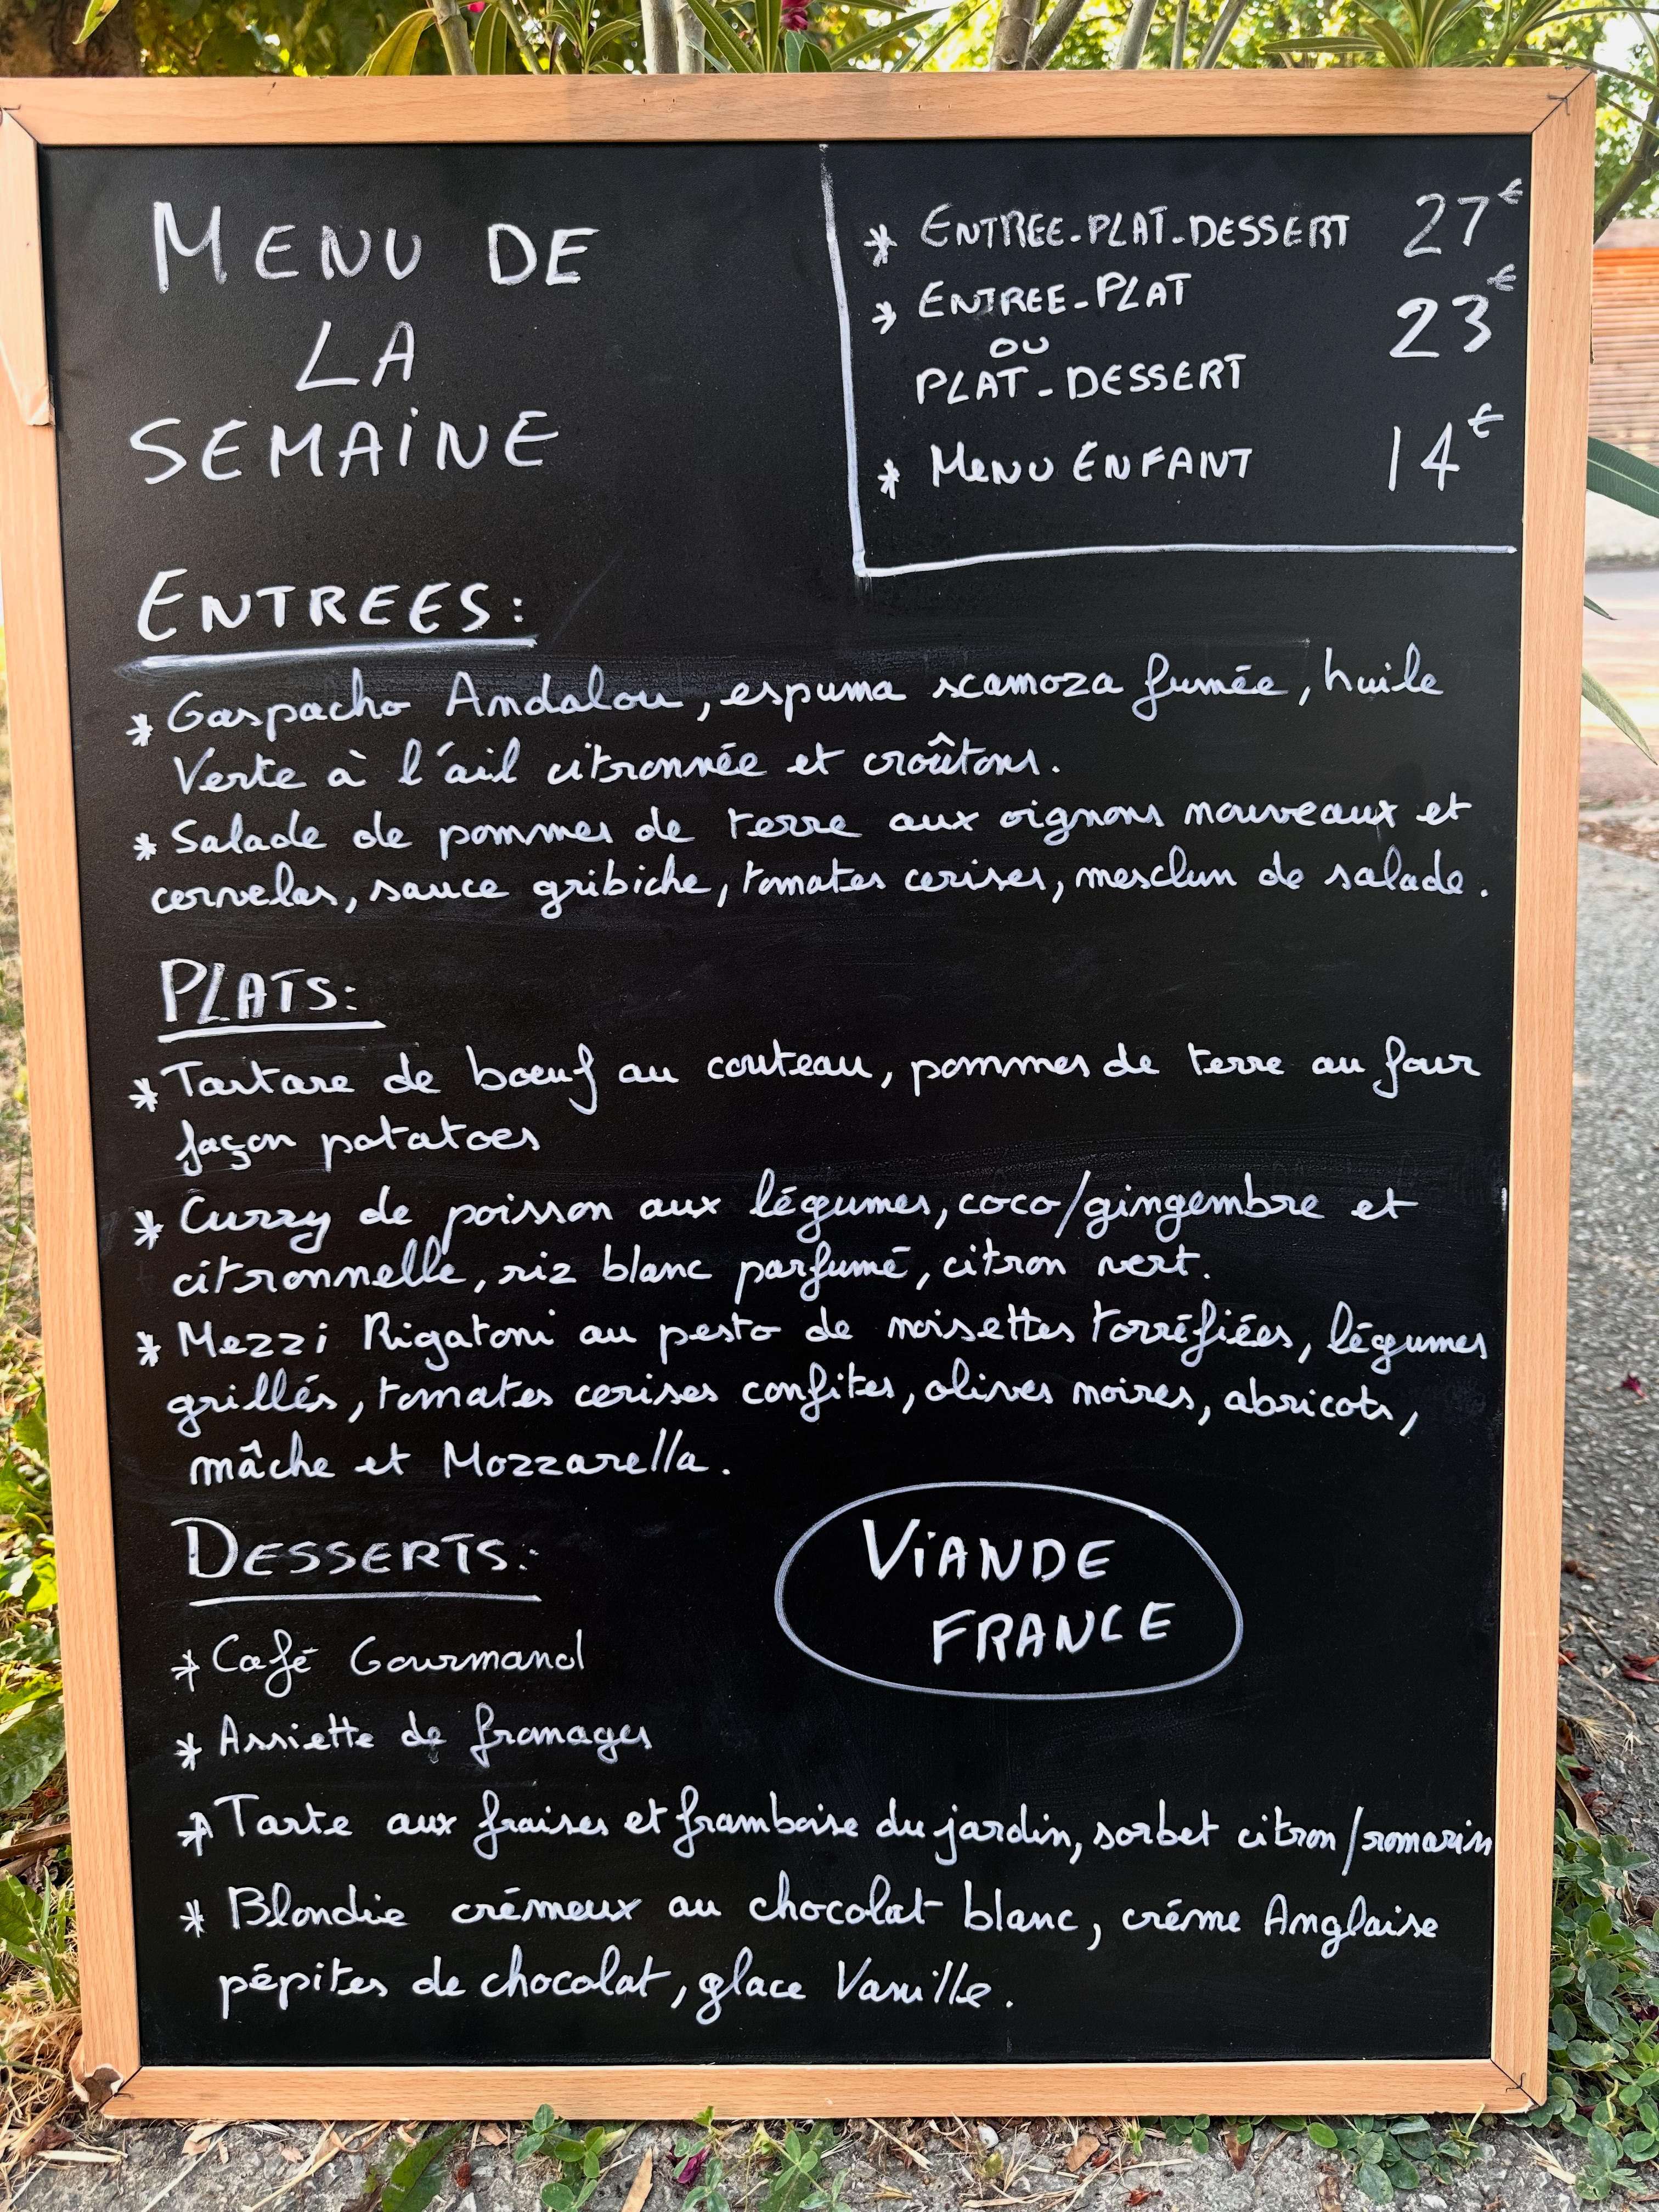 MENU DE
LA
SEMAINE
* ENTREE-PLAT-DESSERT 27€
* ENTREE-PLAT 23€
OU
PLAT-DESSERT
* MENU ENFANT 14€
ENTREES:
* Gaspacho Andalou, espuma scamoza fumée, huile
Verte à l'ail citronnée et croûtons.
* Salade de pommes de terre aux oignons nouveaux et
cervelas, sauce gribiche, tomates cerises, mesclun de salade.
PLATS:
* Tartare de bœuf au couteau, pommes de terre au four
façon potatoes
* Curry de poisson aux légumes, coco/gingembre et
citronnelle, riz blanc parfumé, citron vert.
* Mezzi Rigatoni au pesto de noisettes torréfiées, légumes
grillés, tomates cerises confites, olives noires, abricots,
mâche et Mozzarella.
DESSERTS:
VIANDE
FRANCE
* Café Gourmand
* Assiette de fromages
* Tarte aux fraises et framboise du jardin, sorbet citron/romarin
* Blondie crémeux au chocolat blanc, créme Anglaise
pépites de chocolat, glace Vanille.